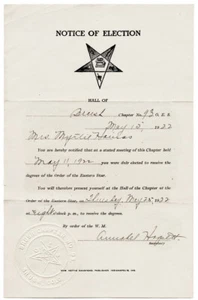 NOTICE OF ELECTION
HALL OF
Chapter No. 93 O. E. S.
May 15, 1922
Mrs. Myrtle
You are hereby notified that at a stated meeting of this Chapter held
May 11, 1922 you were duly elected to receive the
degrees of the Order of the Eastern Star.
You will therefore present yourself at the Hall of the Chapter of the
Order of the Eastern Star, on Thursday, May 25, 1922
at eight o'clock p. m., to receive the degrees.
By order of the W. M.
Annabel
Secretary